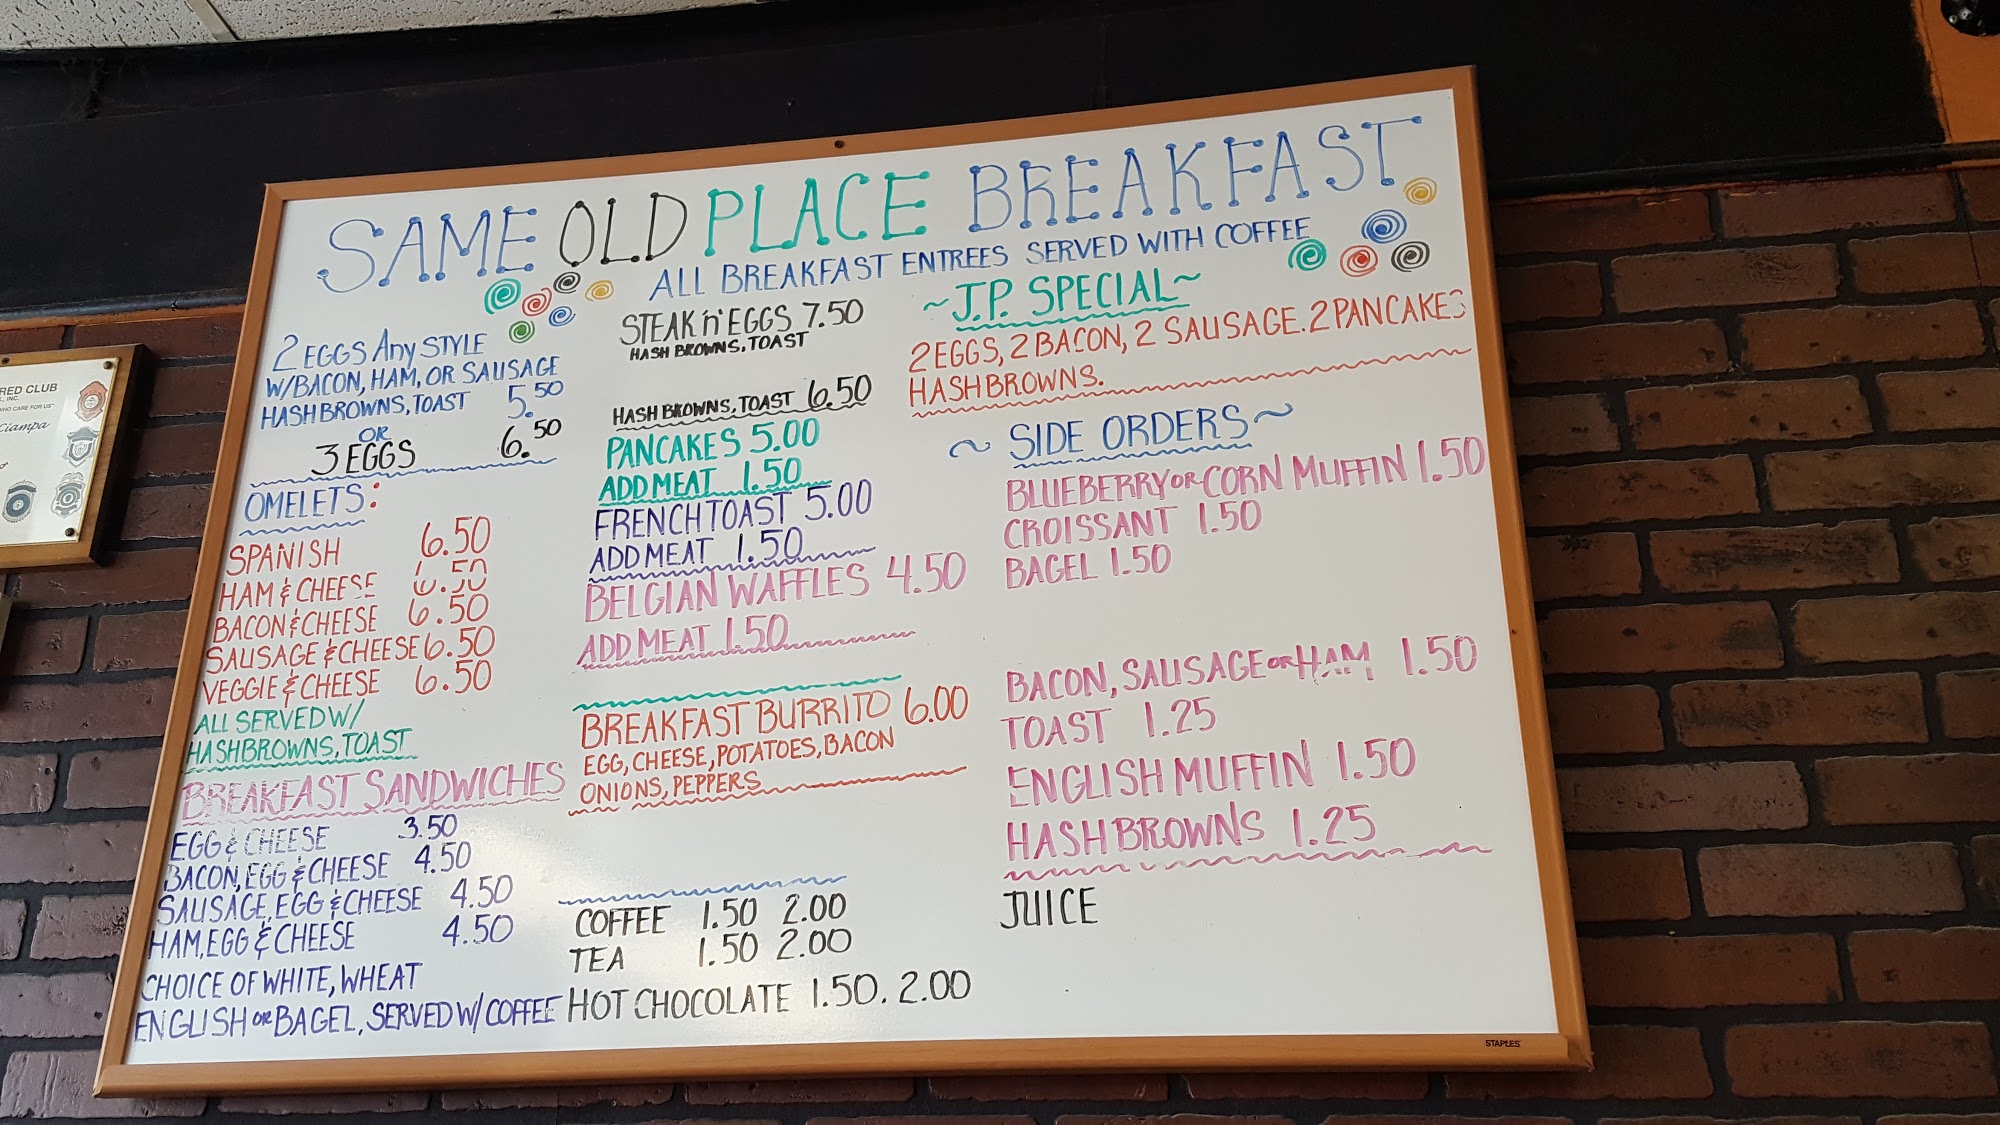 SAME OLD PLACE BREAKFAST
ALL BREAKFAST ENTREES SERVED WITH COFFEE
2 EGGS Any STYLE
W/BACON, HAM, OR SAUSAGE
HASHBROWNS, TOAST 5.50
OR
3 EGGS 6.50
OMELETS:
SPANISH 6.50
HAM & CHEESE 6.50
BACON & CHEESE 6.50
SAUSAGE & CHEESE 6.50
VEGGIE & CHEESE 6.50
ALL SERVED W/
HASHBROWNS, TOAST
BREAKFAST SANDWICHES
EGG & CHEESE 3.50
BACON, EGG & CHEESE 4.50
SAUSAGE, EGG & CHEESE 4.50
HAM, EGG & CHEESE 4.50
CHOICE OF WHITE, WHEAT
ENGLISH OR BAGEL, SERVED W/ COFFEE
STEAK 'n' EGGS 7.50
HASH BROWNS, TOAST
HASH BROWNS, TOAST 6.50
PANCAKES 5.00
ADD MEAT 1.50
FRENCH TOAST 5.00
ADD MEAT 1.50
BELGIAN WAFFLES 4.50
ADD MEAT 1.50
BREAKFAST BURRITO 6.00
EGG, CHEESE, POTATOES, BACON
ONIONS, PEPPERS
COFFEE 1.50 2.00
TEA 1.50 2.00
HOT CHOCOLATE 1.50. 2.00
~J.P. SPECIAL~
2 EGGS, 2 BACON, 2 SAUSAGE. 2 PANCAKES
HASHBROWNS.
~ SIDE ORDERS ~
BLUEBERRY OR CORN MUFFIN 1.50
CROISSANT 1.50
BAGEL 1.50
BACON, SAUSAGE OR HAM 1.50
TOAST 1.25
ENGLISH MUFFIN 1.50
HASHBROWNS 1.25
JUICE
STAPLES
RED CLUB
INC.
WHO CARE FOR US"
Ciampa